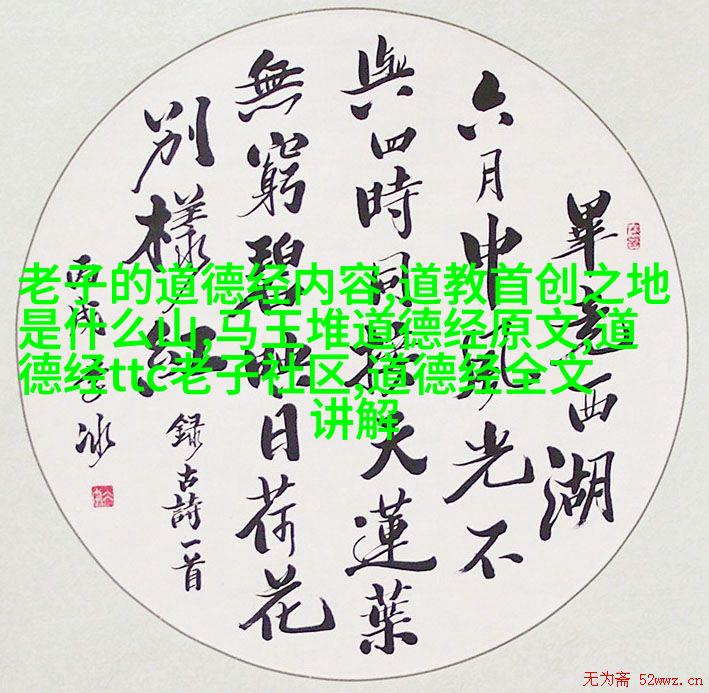 老子的道德经内容,道教首创之地
是什么山,马王堆道德经原文,道
德经ttc老子社区,道德经全文
讲解
畢竟西湖
六月中風光不
與四時同接天蓮葉
無窮碧映日荷花
別樣紅
錄古詩一首
丙戌冰
无为斋 52wwz.cn